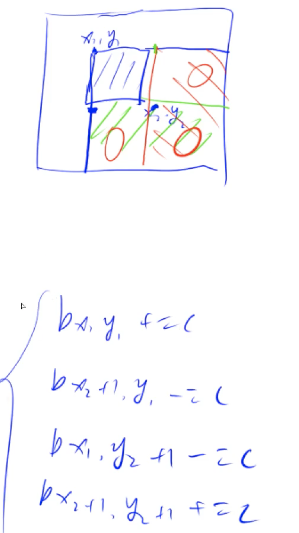 x₁,y₁
x₂,y₂
bx₁,y₁ += c
bx₂+1,y₁ -= c
bx₁,y₂+1 -= c
bx₂+1,y₂+1 += c